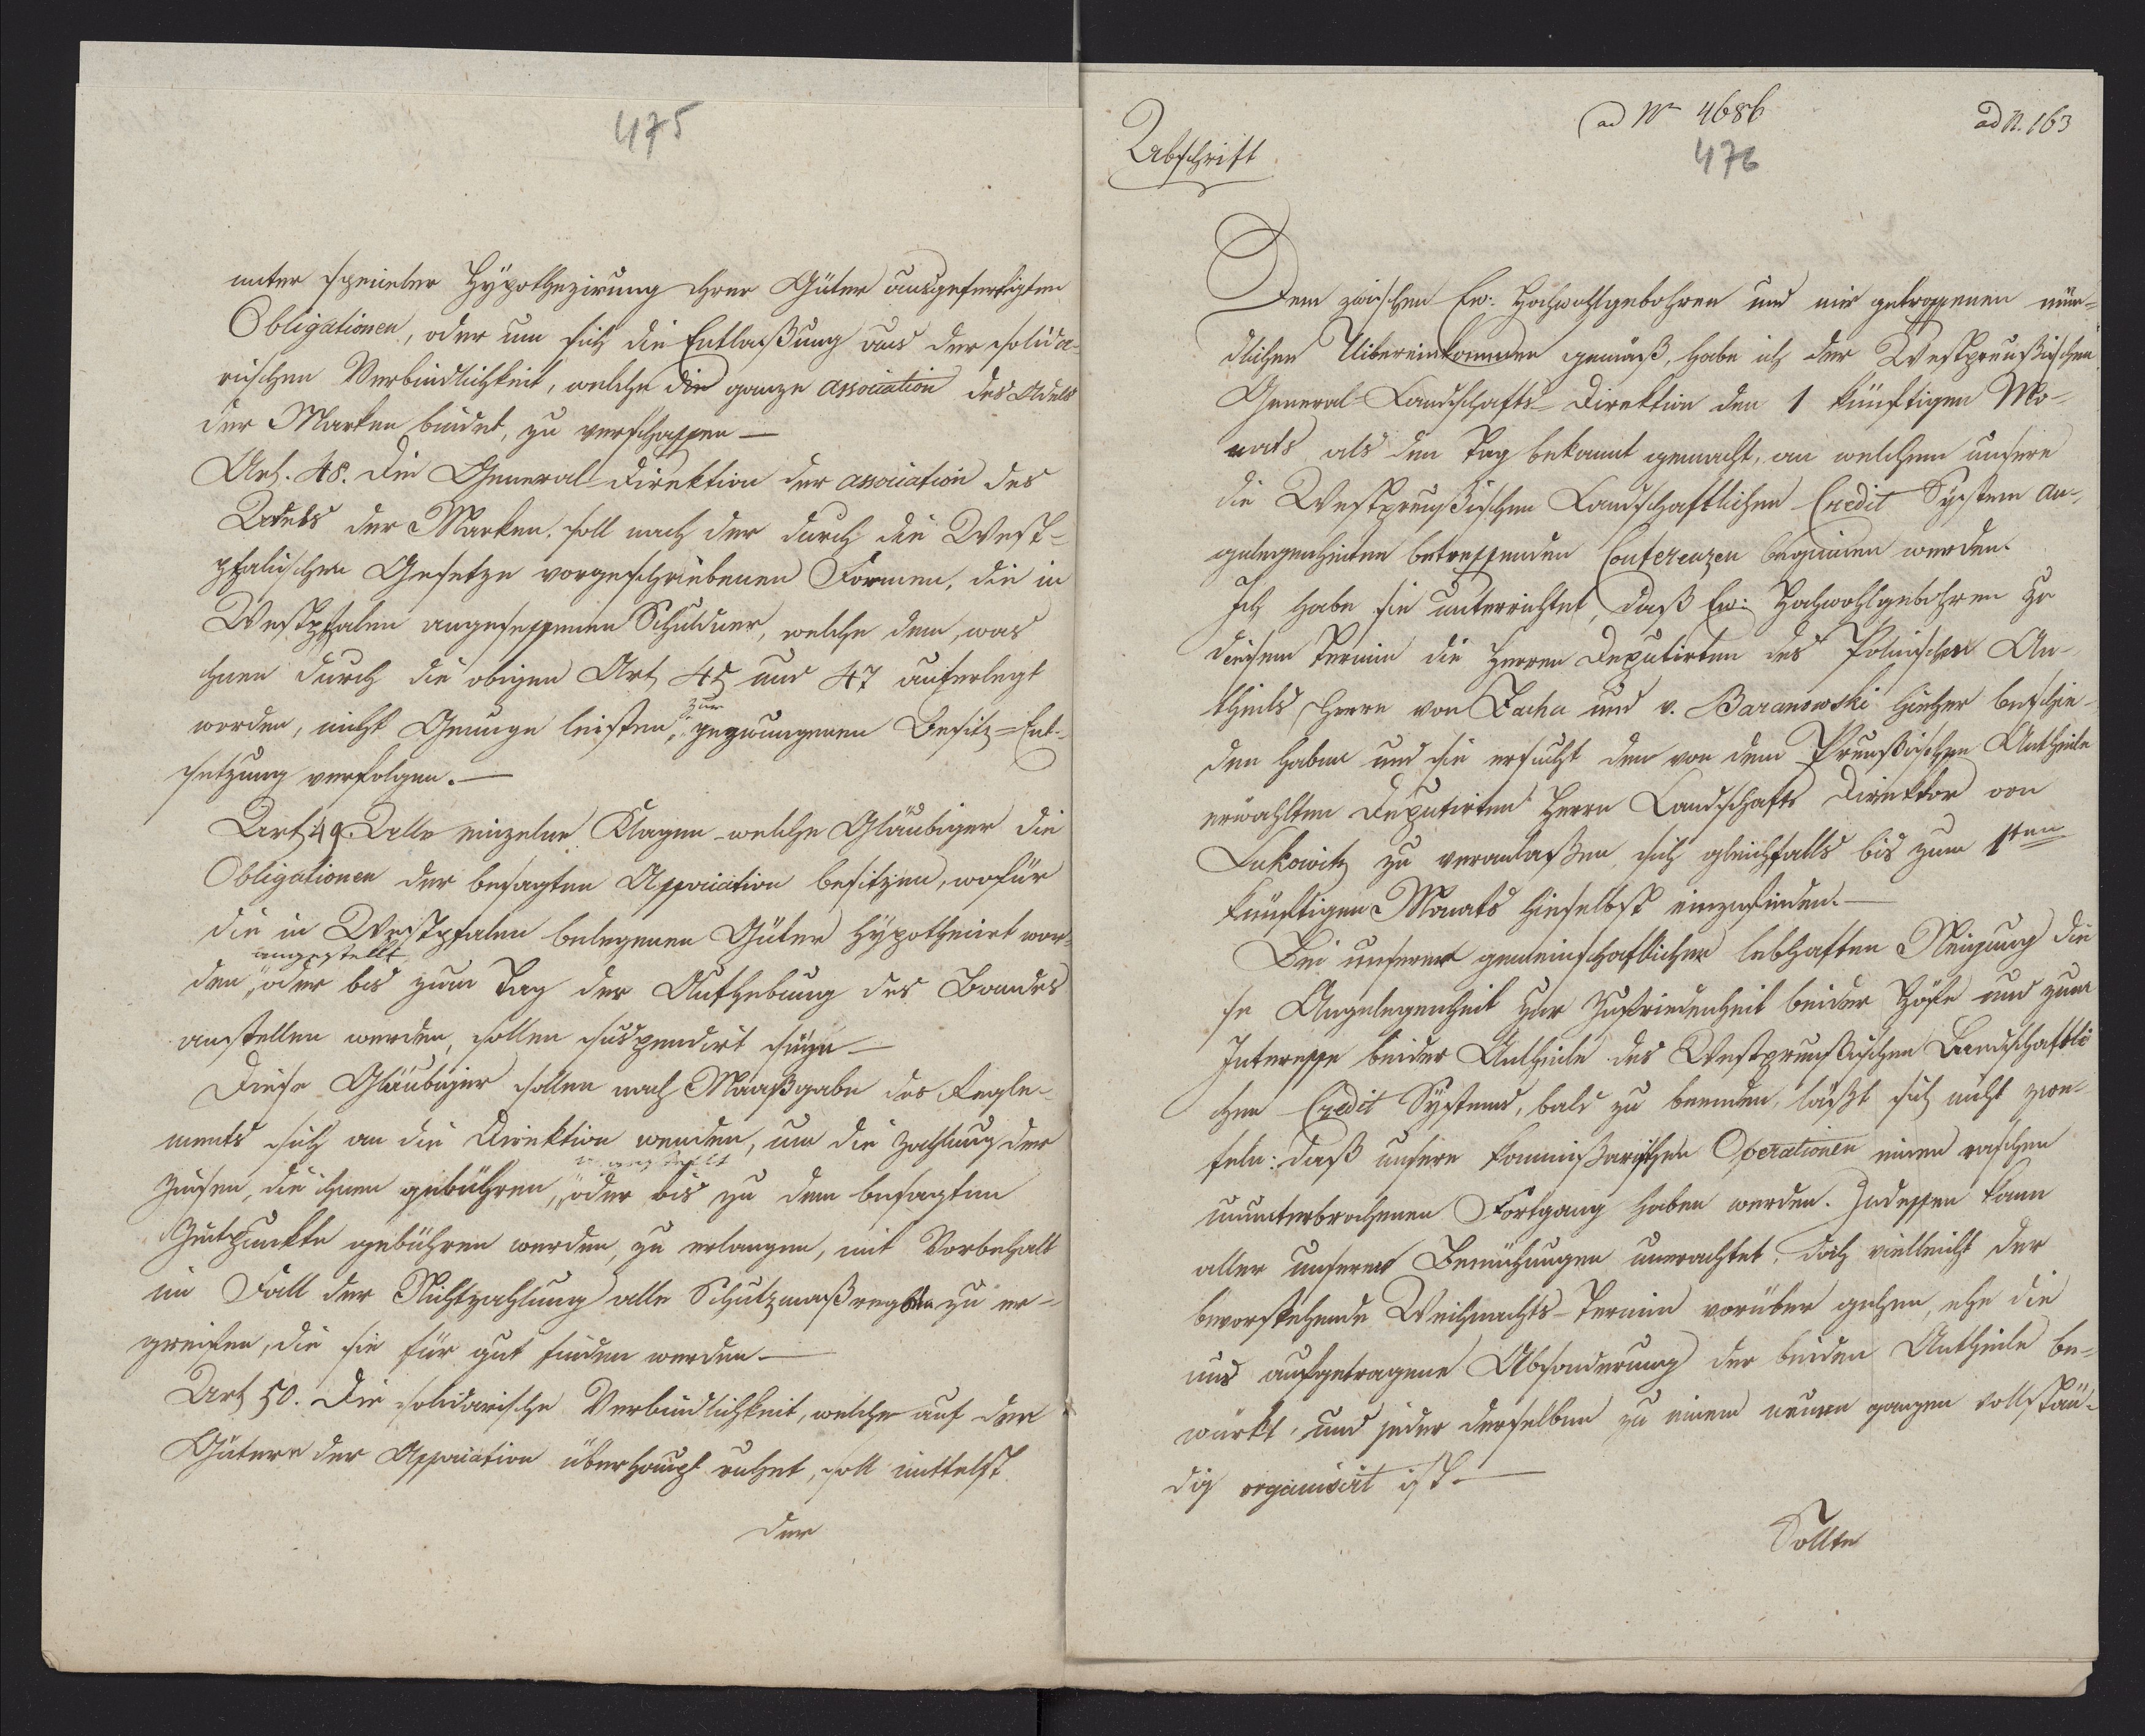 475
unter specieler Hÿpothezirung ihrer Güter ausgefertigten
Obligationen, oder um sich die Entlaßung aus der solida-
rischen Verbindlichkeit, welche die ganze association des Adels
der Marken bindet, zu verschaffen —
Art. 48. Die General-Direktion der association des
Adels der Marken, soll nach der durch die West-
phälischen Gesetze vorgeschriebenen Formen, die in
Westphalen angesessenen Schuldner, welche dem, was
ihnen durch die obigen Art 45 und 47 auferlegt
zur
worden, nicht Genüge leisten, gezwungenen Besitz-Ent-
setzung verfolgen. —
Art 49. Alle einzelne Klagen welche Gläubiger die
Obligationen der besagten Association besitzen, wofür
die in Westphalen belegenen Güter hÿpothecirt wor-
angestellt
den, oder bis zum Tag der Aufhebung des Bandes
anstellen werden, sollen suspendirt seÿn —
Diese Gläubiger sollen nach Maaßgabe des Regle-
ments sich an die Direktion wenden, um die Zahlung der
Zinsen, die ihnen gebühren, oder bis zu dem besagten
Zeitpunkte gebühren werden, zu erlangen, mit Vorbehalt
im Fall der Nichtzahlung alle Schutzmaßregeln zu er-
greifen, die sie für gut finden werden —
Art 50. Die solidarische Verbindlichkeit, welche auf den
Gütern der Association überhaupt ruhet, soll mittelst
der
Abschrift
ad Nr 4686
ad N. 163
476
Dem zwischen Ew: Hochwohlgebohren und mir getroffenen mün-
dlichen Uibereinkommen gemäß, habe ich der Westpreußischen
General-Landschafts-Direktion den 1 künftigen Mo-
nats als den Tag bekannt gemacht, an welchem unsere
die Westpreußischen Landschaftlichen Credit System An-
gelegenheiten betreffenden Conferenzen beginnen werden.
Ich habe sie unterrichtet, daß Ew: Hochwohlgebohren zu
diesem Termin die Herren Deputirten des Polnischen An-
theils Herrn von Zacha und v. Baranowski hieher beschie-
den haben und sie ersucht den von dem Preußischen Antheile
erwählten Deputirten Herrn Landschafts Direktor von
Lukowitz zu veranlaßen sich gleichfalls bis zum 1sten
künftigen Monats hieselbst einzufinden. —
Bei unserer gemeinschaftlichen lebhaften Neigung die-
se Angelegenheit zur Zufriedenheit beider Höfe und zum
Interesse beider Antheile des Westpreußischen Landschaftli-
chen Credit Systems, bald zu beenden, läßt sich nicht zwei-
feln: daß unsere kommißarischen Operationen einen raschen
ununterbrochenen Fortgang haben werden. Indessen kann
aller unserer Bemühungen unerachtet, doch vielleicht der
bevorstehende Weihnachts-Termin vorüber gehen, ehe die
uns aufgetragene Absonderung der beiden Antheile be-
würkt, und jeder derselben zu einem neuen ganzen vollstän-
dig organisirt ist. —
Sollte